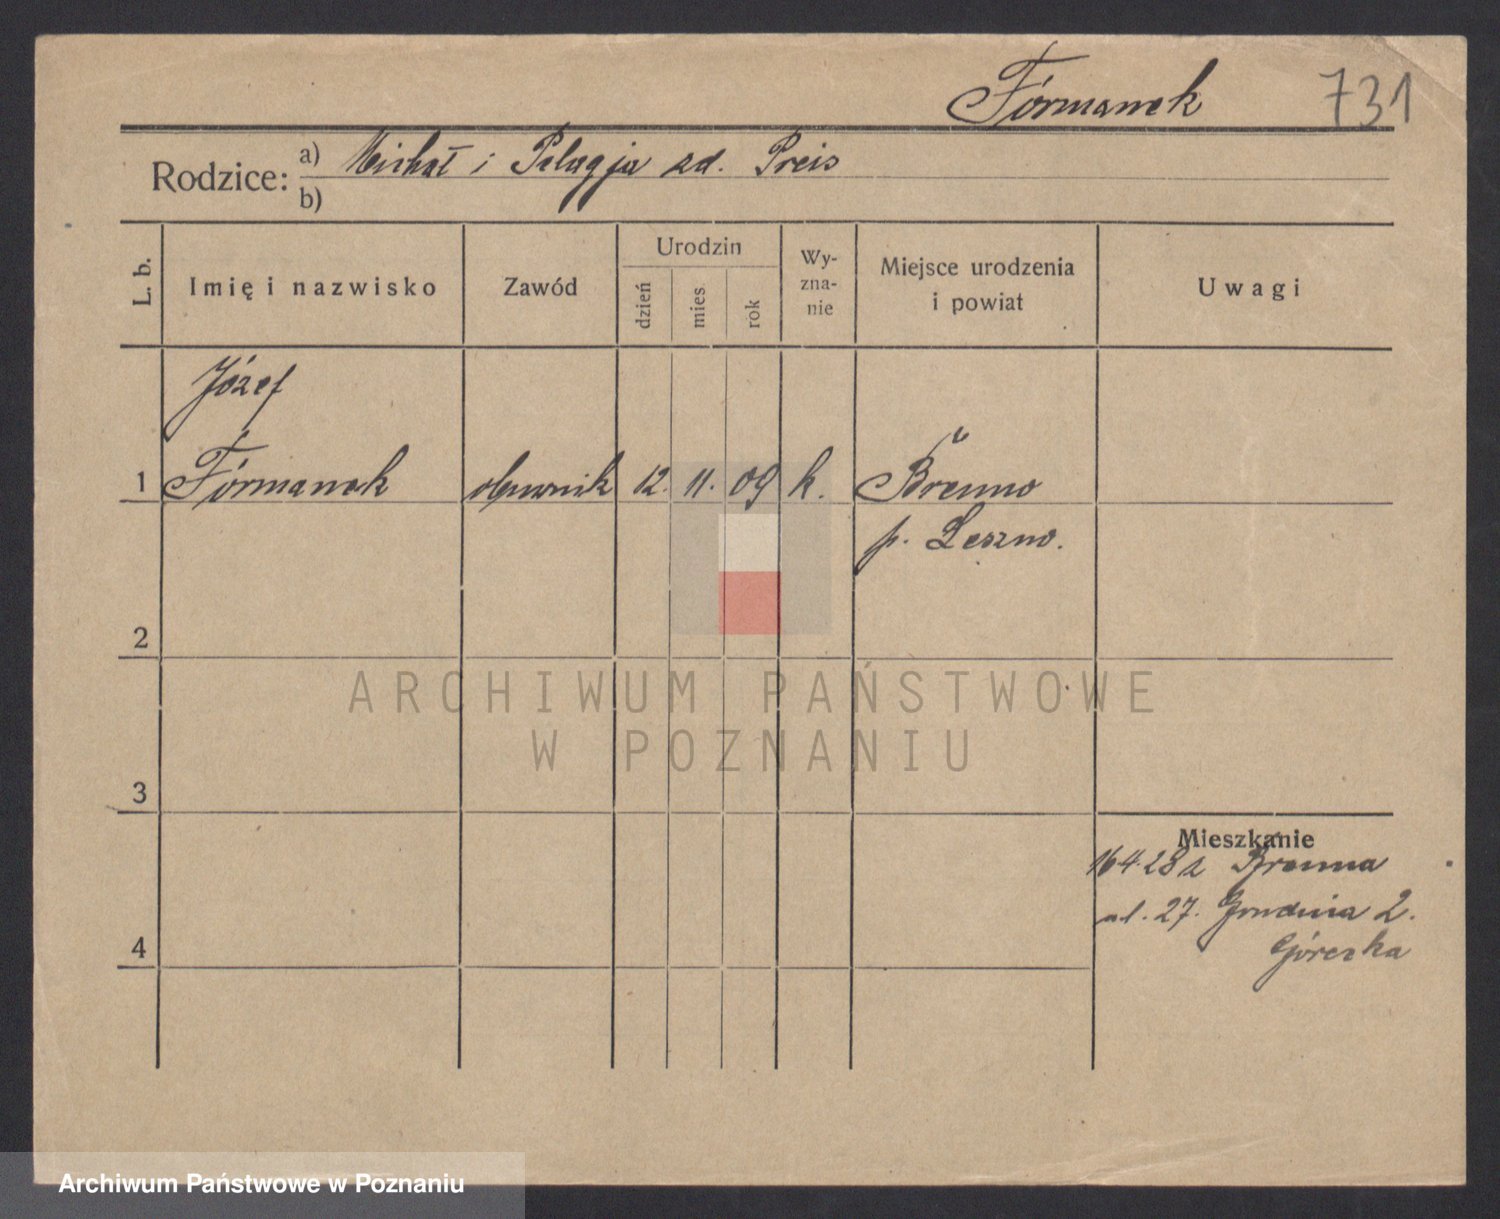 Fórmanek 731
Rodzice: a) Michał i Pelagja zd. Preis
b)
L. b. Imię i nazwisko Zawód Urodzin dzień mies rok Wyznanie Miejsce urodzenia i powiat Uwagi
Józef
1 Fórmanek obuwnik 12. 11. 09 k. Brenno
p. Leszno.
2
ARCHIWUM PAŃSTWOWE
W POZNANIU
3
Mieszkanie
16 4. 28 z Brenna
ul. 27. Grudnia 2.
Górczka
4
Archiwum Państwowe w Poznaniu